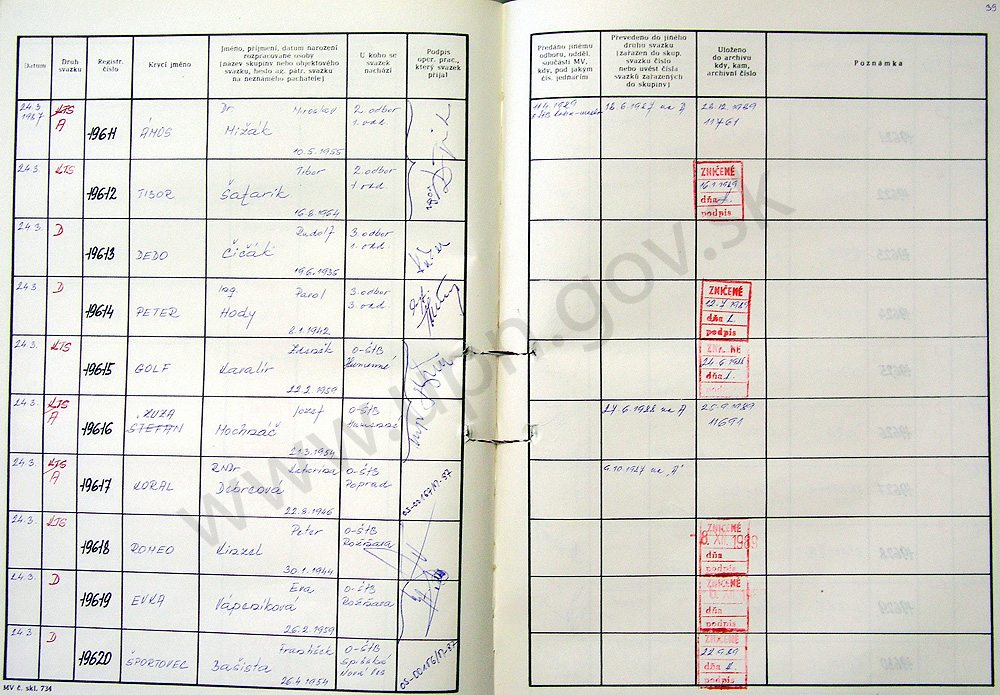 39
Datum
Druh svazku
Registr. číslo
Krycí jméno
Jméno, příjmení, datum narození
rozpracované osoby
(název skupiny nebo objektového
svazku, heslo ag. pátr. svazku
na neznámého pachatele)
U koho se
svazek
nachází
Podpis
oper. prac.,
který svazek
přijal
Předáno jinému
odboru, odděl.
součásti MV,
kdy, pod jakým
čís. jednacím
Převedeno do jiného
druhu svazku
(zařazen do skup.
svazku
nebo uvést čísla
svazků zařazených
do skupiny)
Uloženo
do archivu
kdy, kam,
archivní číslo
Poznámka
24.3. 1987
KTS
A
19611
ÁMOS
Dr Miroslav
Mižák
10.5.1955
2. odbor
1. odd.
11.4.1989
18.6.1987 na A
28.12.1989
11761
24.3.
KTS
19612
TIBOR
Tibor
Šafarik
16.8.1964
2. odbor
1. odd.
ZNIČENÉ
dňa
podpis
24.3.
D
19613
DEDO
Rudolf
Čičák
19.6.1935
3. odbor
1. odd.
24.3.
D
19614
PETER
Ing. Pavol
Hody
8.1.1942
3. odbor
3. odd.
ZNIČENÉ
dňa
podpis
24.3.
KTS
19615
GOLF
Zdeněk
Kavalír
22.2.1959
O-ŠtB
Humenné
24.6.1988
dňa
24.3.
KTS
A
19616
ŠTEFAN
Jozef
Mochnáč
21.3.1954
O-ŠtB
Humenné
27.6.1988 na A
25.9.1989
11691
24.3.
KTS
A
19617
KORAL
RNDr Katarína
Debrcová
22.8.1946
O-ŠtB
Poprad
6.10.1987 na A
24.3.
KTS
19618
ROMEO
Peter
Kinzel
30.1.1944
O-ŠtB
Rožňava
ZNIČENÉ
-8. XII. 1989
dňa
podpis
24.3.
D
19619
EVKA
Eva
Vápeníková
26.2.1959
O-ŠtB
Rožňava
ZNIČENÉ
dňa
podpis
24.3.
D
19620
ŠPORTOVEC
František
Bašista
26.4.1954
O-ŠtB
Spišská
Nová Ves
ZNIČENÉ
dňa
podpis
MV č. skl. 734
www.upn.gov.sk